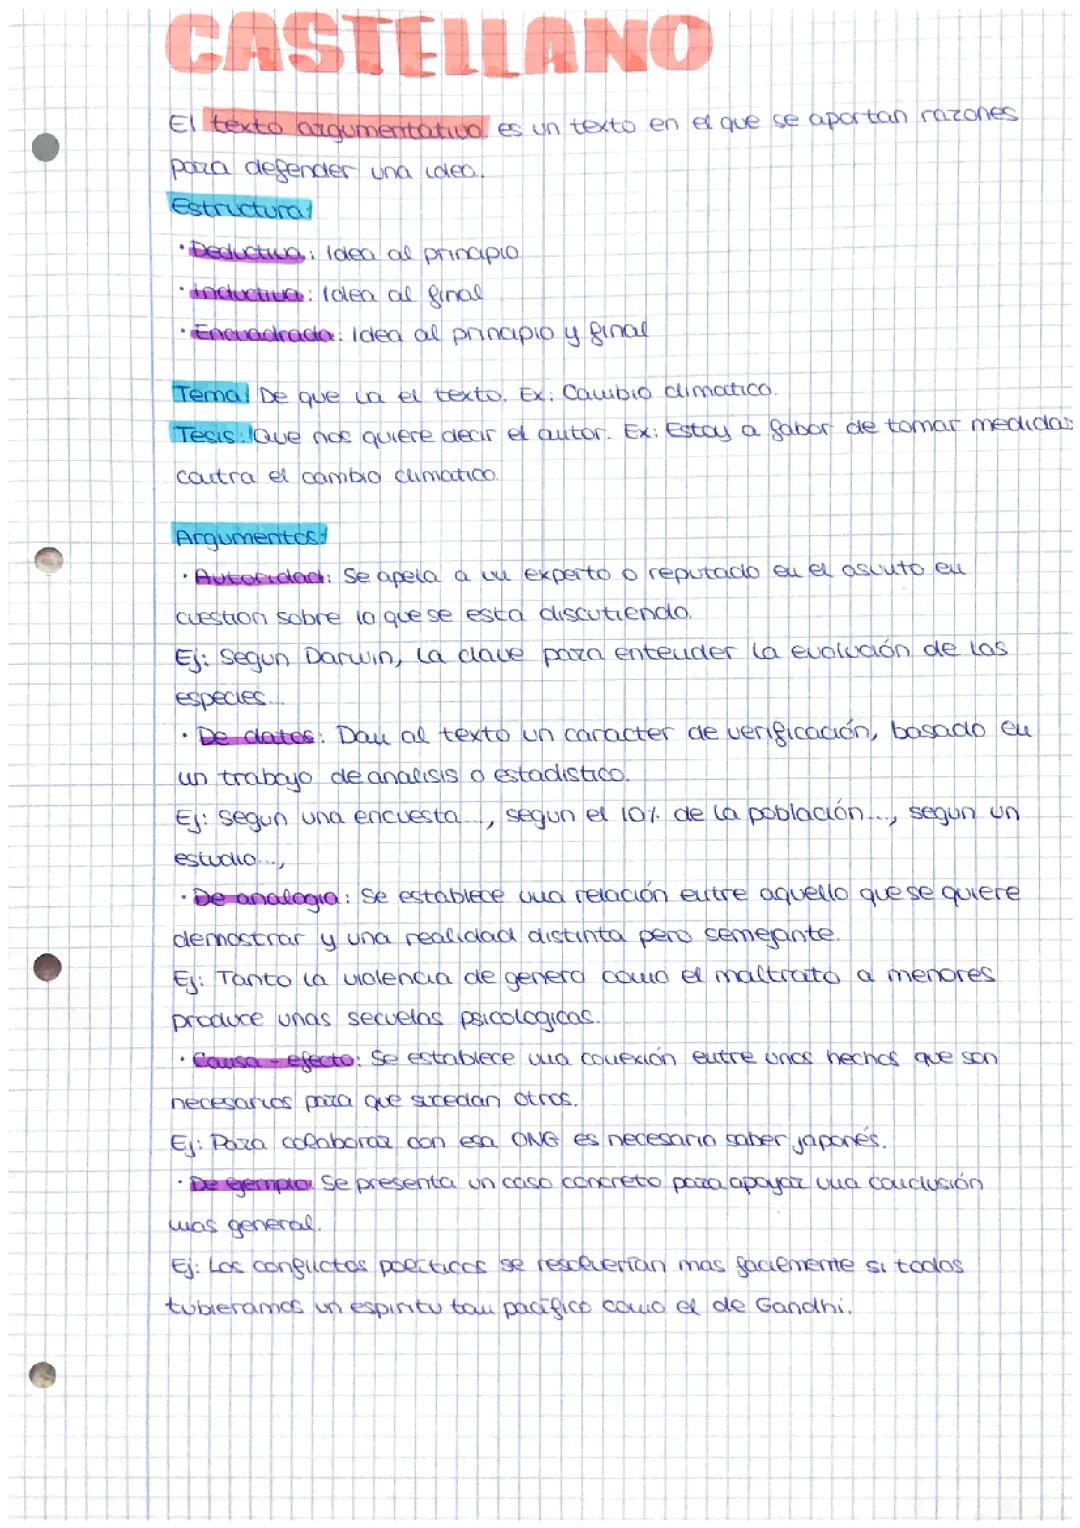 CASTELLANO
El texto argumentativo es un texto en el que se aportan razones
para defender una idea.
Estructura:
· Deductiva: Idea al principio
· Inductiva: Idea al final
· Encuadrada: Idea al principio y final
Tema: De que va el texto. Ex: Cambio climatico.
Tesis: Que nos quiere decir el autor. Ex: Estoy a fabor de tomar medidas
contra el cambio climatico.
Argumentos:
· Autoridad: Se apela a un experto o reputado en el asunto en
cuestion sobre lo que se esta discutiendo.
Ej: Segun Darwin, la clave para entender la evolución de las
especies...
· De datos: Dan al texto un caracter de verificación, basado en
un trabajo de analisis o estadistico.
Ej: Segun una encuesta..., segun el 10% de la población..., segun un
estudio...,
· De analogia: Se establece una relación entre aquello que se quiere
demostrar y una realidad distinta pero semejante.
Ej: Tanto la violencia de genero como el maltrato a menores
produce unas secuelas psicologicas.
· Causa - efecto: Se establece una conexión entre unos hechos que son
necesarios para que sucedan otros.
Ej: Para colaborar con esa ONG es necesario saber japonés.
· De ejemplo: Se presenta un caso concreto para apoyar una conclusión
mas general.
Ej: Los conflictos politicos se resolverían mas facilmente si todos
tubieramos un espiritu tan pacífico como el de Gandhi.